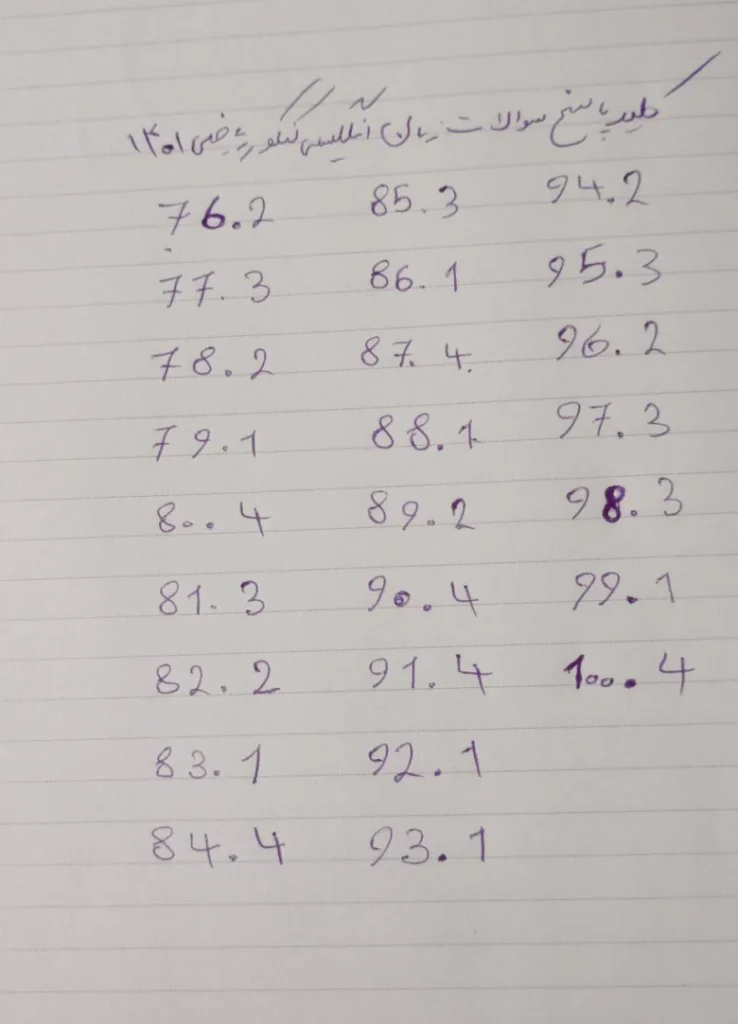 کلید پاسخ سوالات زبان انگلیسی کنکور ریاضی ۱۴۰۱
76.2 85.3 94.2
77.3 86.1 95.3
78.2 87.4 96.2
79.1 88.1 97.3
80.4 89.2 98.3
81.3 90.4 99.1
82.2 91.4 100.4
83.1 92.1
84.4 93.1